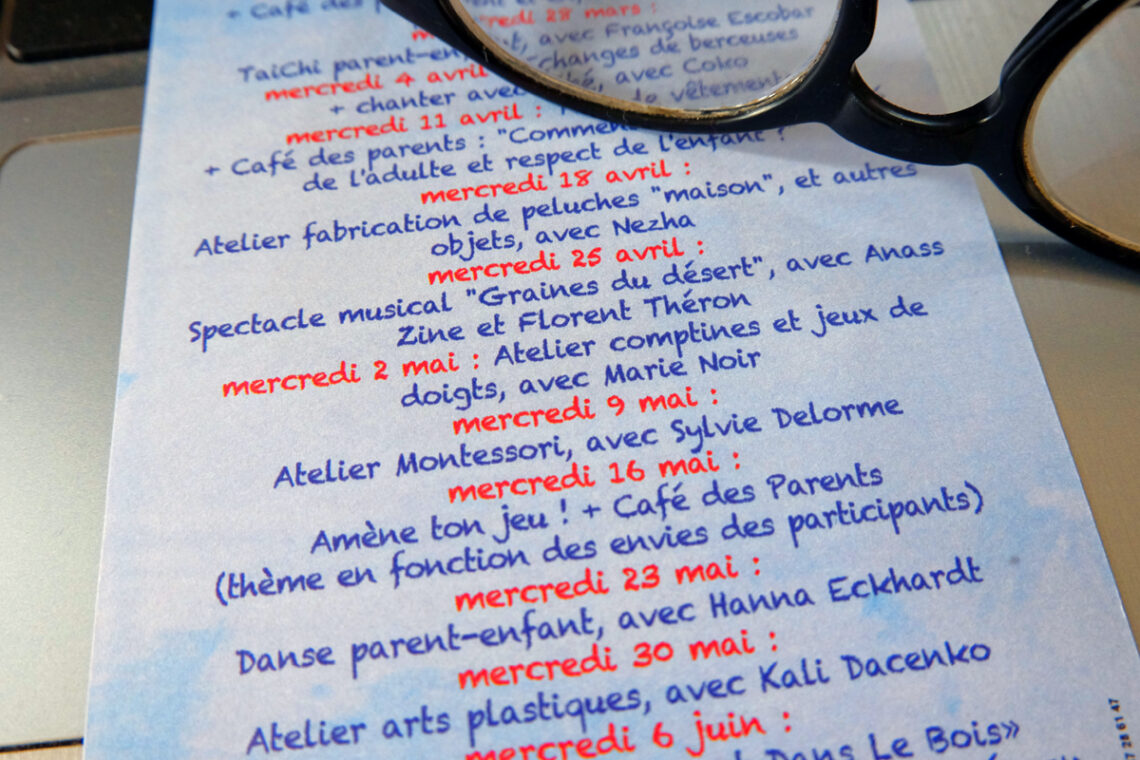 + Café des
mercredi 28 mars :
TaiChi parent-en t, avec Françoise Escobar
mercredi 4 avril changes de berceuses
+ chanter avec bé, avec Coko
mercredi 11 avril : de vêtement
+ Café des parents : "Commen
de l'adulte et respect de l'enfant ?
mercredi 18 avril :
Atelier fabrication de peluches "maison", et autres
objets, avec Nezha
mercredi 25 avril :
Spectacle musical "Graines du désert", avec Anass
Zine et Florent Théron
mercredi 2 mai : Atelier comptines et jeux de
doigts, avec Marie Noir
mercredi 9 mai :
Atelier Montessori, avec Sylvie Delorme
mercredi 16 mai :
Amène ton jeu ! + Café des Parents
(thème en fonction des envies des participants)
mercredi 23 mai :
Danse parent-enfant, avec Hanna Eckhardt
mercredi 30 mai :
Atelier arts plastiques, avec Kali Dacenko
mercredi 6 juin :
Dans Le Bois»
7 28 61 47